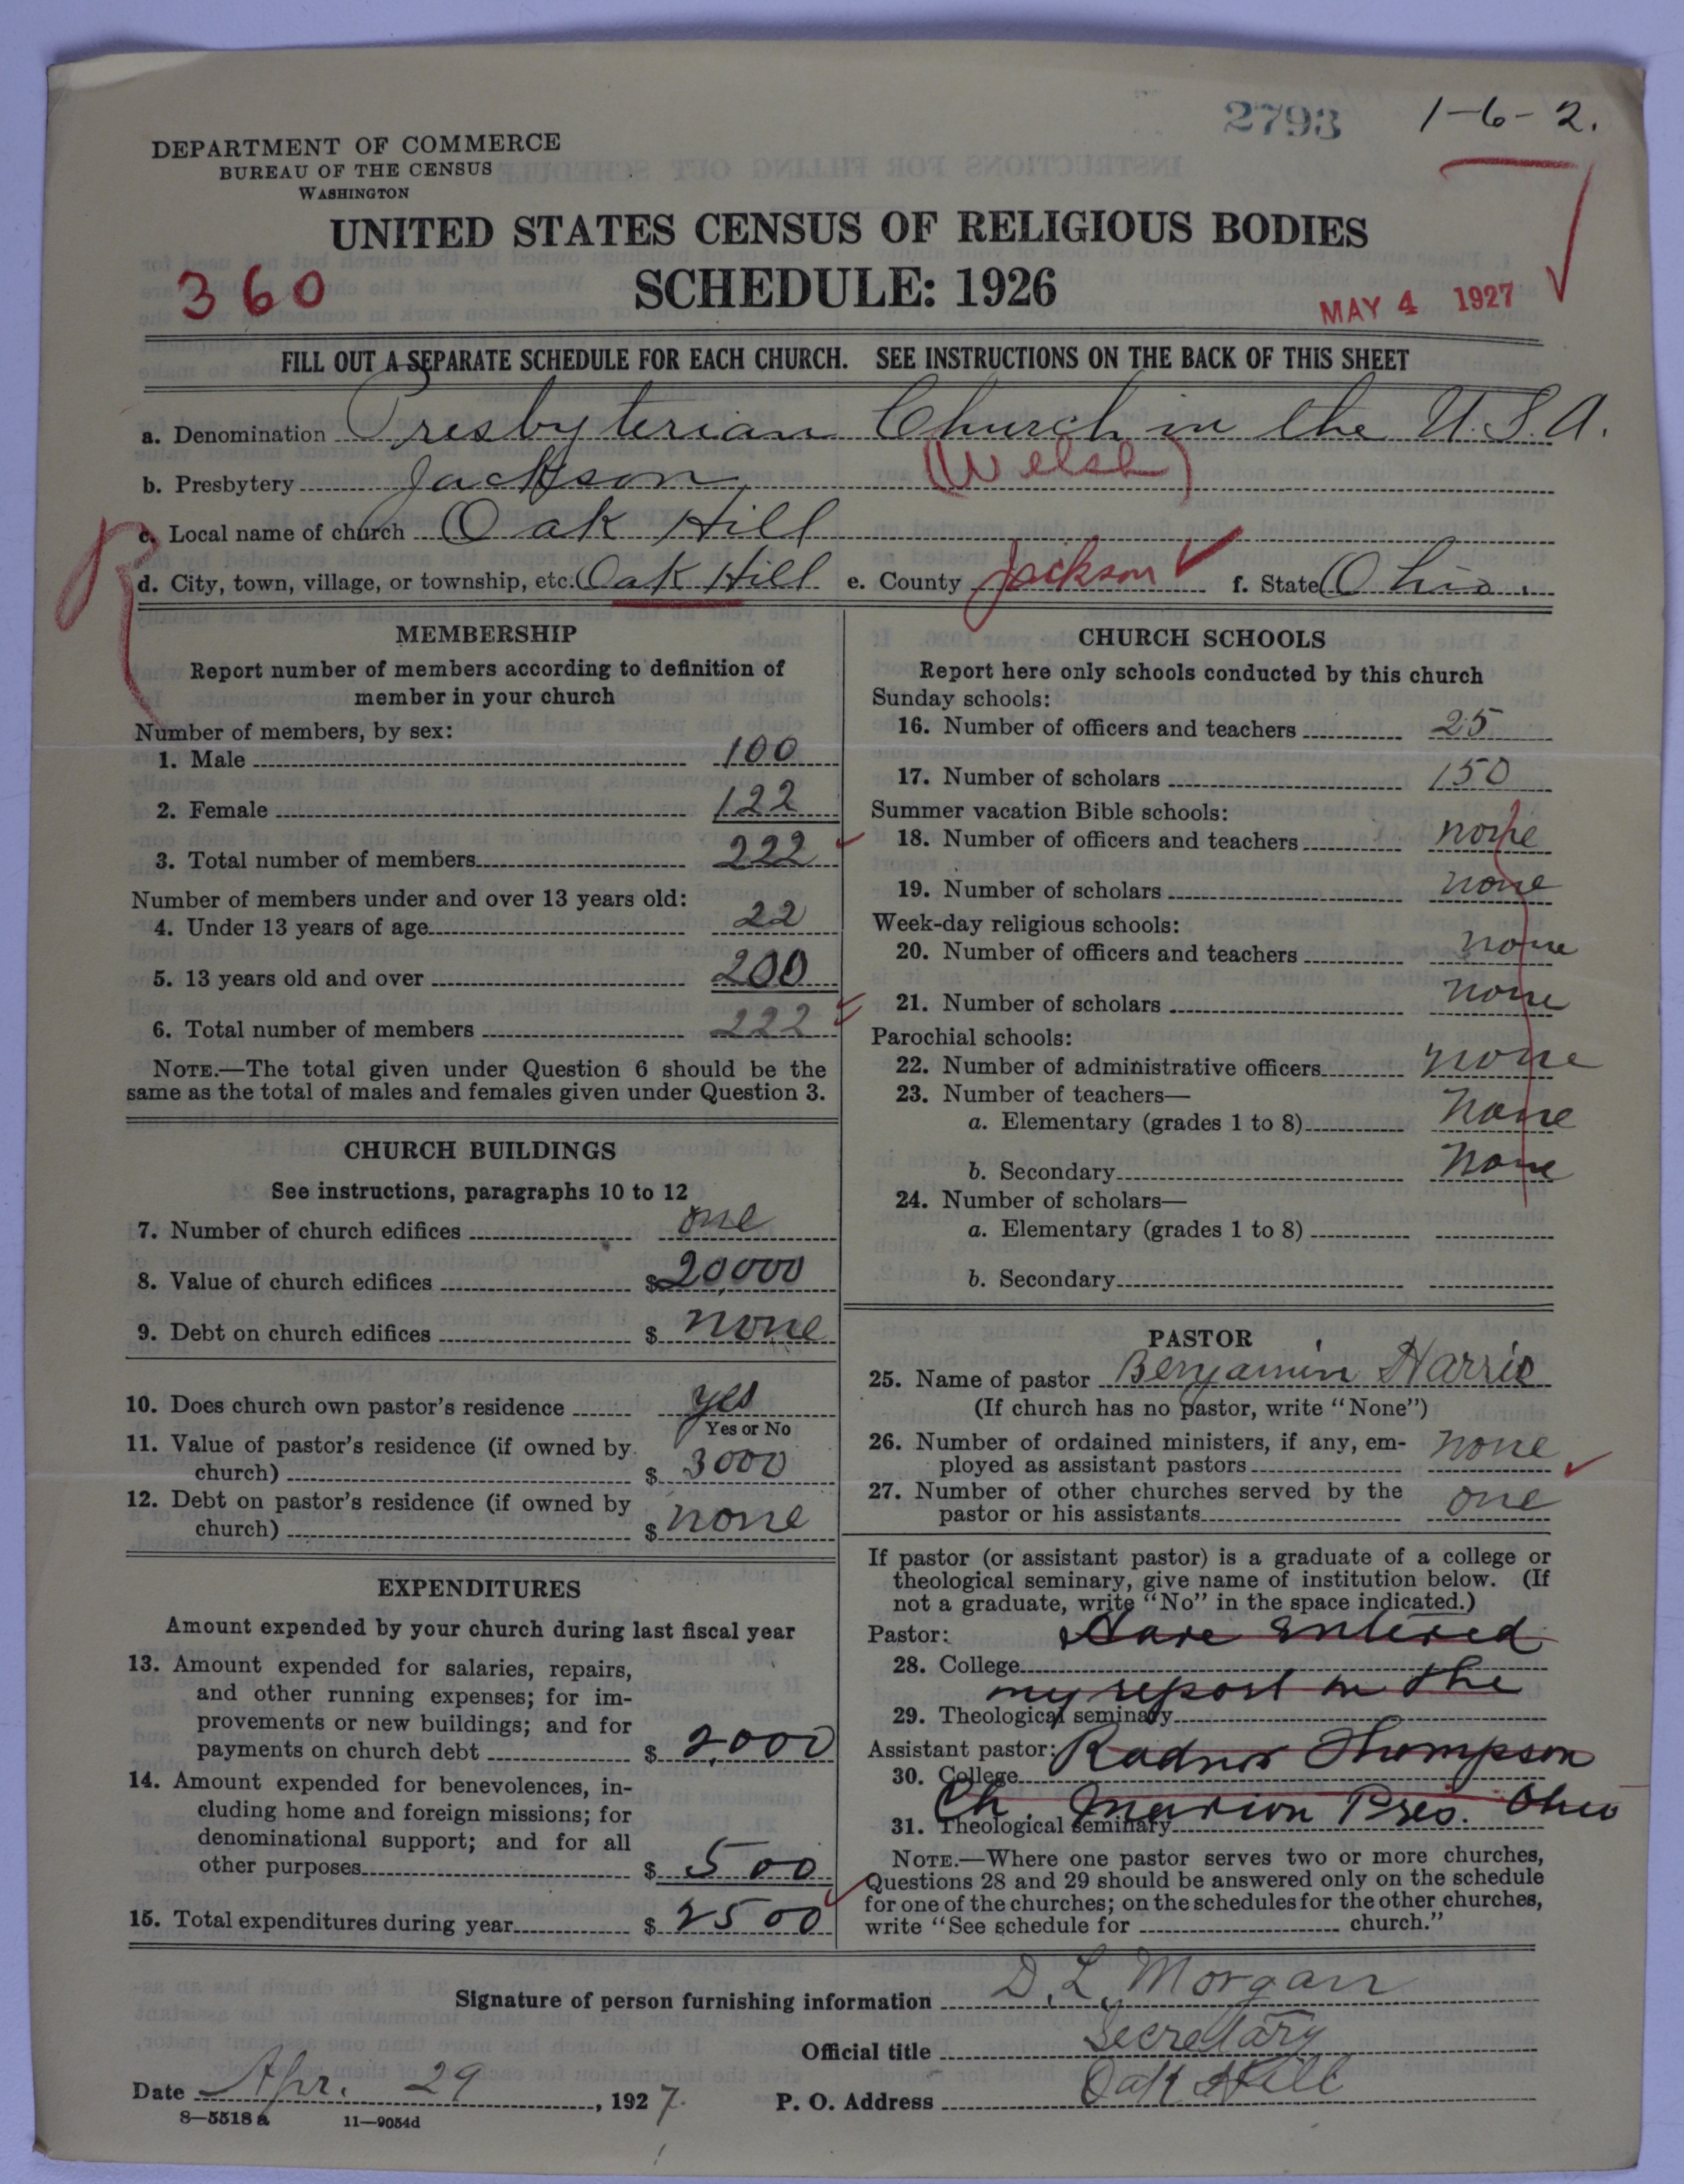 2793 1-6-2.
DEPARTMENT OF COMMERCE
BUREAU OF THE CENSUS
WASHINGTON
UNITED STATES CENSUS OF RELIGIOUS BODIES
360 SCHEDULE: 1926 MAY 4 1927
FILL OUT A SEPARATE SCHEDULE FOR EACH CHURCH. SEE INSTRUCTIONS ON THE BACK OF THIS SHEET
a. Denomination Presbyterian Church in the U.S.A.
(Welsh)
b. Presbytery Jackson
c. Local name of church Oak Hill
d. City, town, village, or township, etc. Oak Hill e. County Jackson f. State Ohio.
MEMBERSHIP
Report number of members according to definition of
member in your church
Number of members, by sex:
1. Male 100
2. Female 122
3. Total number of members 222
Number of members under and over 13 years old:
4. Under 13 years of age 22
5. 13 years old and over 200
6. Total number of members 222
NOTE.—The total given under Question 6 should be the
same as the total of males and females given under Question 3.
CHURCH BUILDINGS
See instructions, paragraphs 10 to 12
7. Number of church edifices one
8. Value of church edifices $20,000
9. Debt on church edifices $ none
10. Does church own pastor's residence yes
Yes or No
11. Value of pastor's residence (if owned by
church) $ 3000
12. Debt on pastor's residence (if owned by
church) $ none
EXPENDITURES
Amount expended by your church during last fiscal year
13. Amount expended for salaries, repairs,
and other running expenses; for im-
provements or new buildings; and for
payments on church debt $ 2,000
14. Amount expended for benevolences, in-
cluding home and foreign missions; for
denominational support; and for all
other purposes $ 500
15. Total expenditures during year $ 2500
CHURCH SCHOOLS
Report here only schools conducted by this church
Sunday schools:
16. Number of officers and teachers 25
17. Number of scholars 150
Summer vacation Bible schools:
18. Number of officers and teachers none
19. Number of scholars none
Week-day religious schools:
20. Number of officers and teachers none
21. Number of scholars none
Parochial schools:
22. Number of administrative officers none
23. Number of teachers—
a. Elementary (grades 1 to 8) none
b. Secondary none
24. Number of scholars—
a. Elementary (grades 1 to 8)
b. Secondary
PASTOR
25. Name of pastor Benjamin Harris
(If church has no pastor, write "None")
26. Number of ordained ministers, if any, em-
ployed as assistant pastors none
27. Number of other churches served by the
pastor or his assistants one
If pastor (or assistant pastor) is a graduate of a college or
theological seminary, give name of institution below. (If
not a graduate, write "No" in the space indicated.)
Pastor: Have entered
28. College
my report in the
29. Theological seminary
Assistant pastor: Radnor Thompson
30. College
Ch. Marion Pres. Ohio
31. Theological seminary
NOTE.—Where one pastor serves two or more churches,
Questions 28 and 29 should be answered only on the schedule
for one of the churches; on the schedules for the other churches,
write "See schedule for church."
Signature of person furnishing information D. L. Morgan
Official title Secretary
Date Apr. 29, 1927. P. O. Address Oak Hill
8—5518a 11—9054d